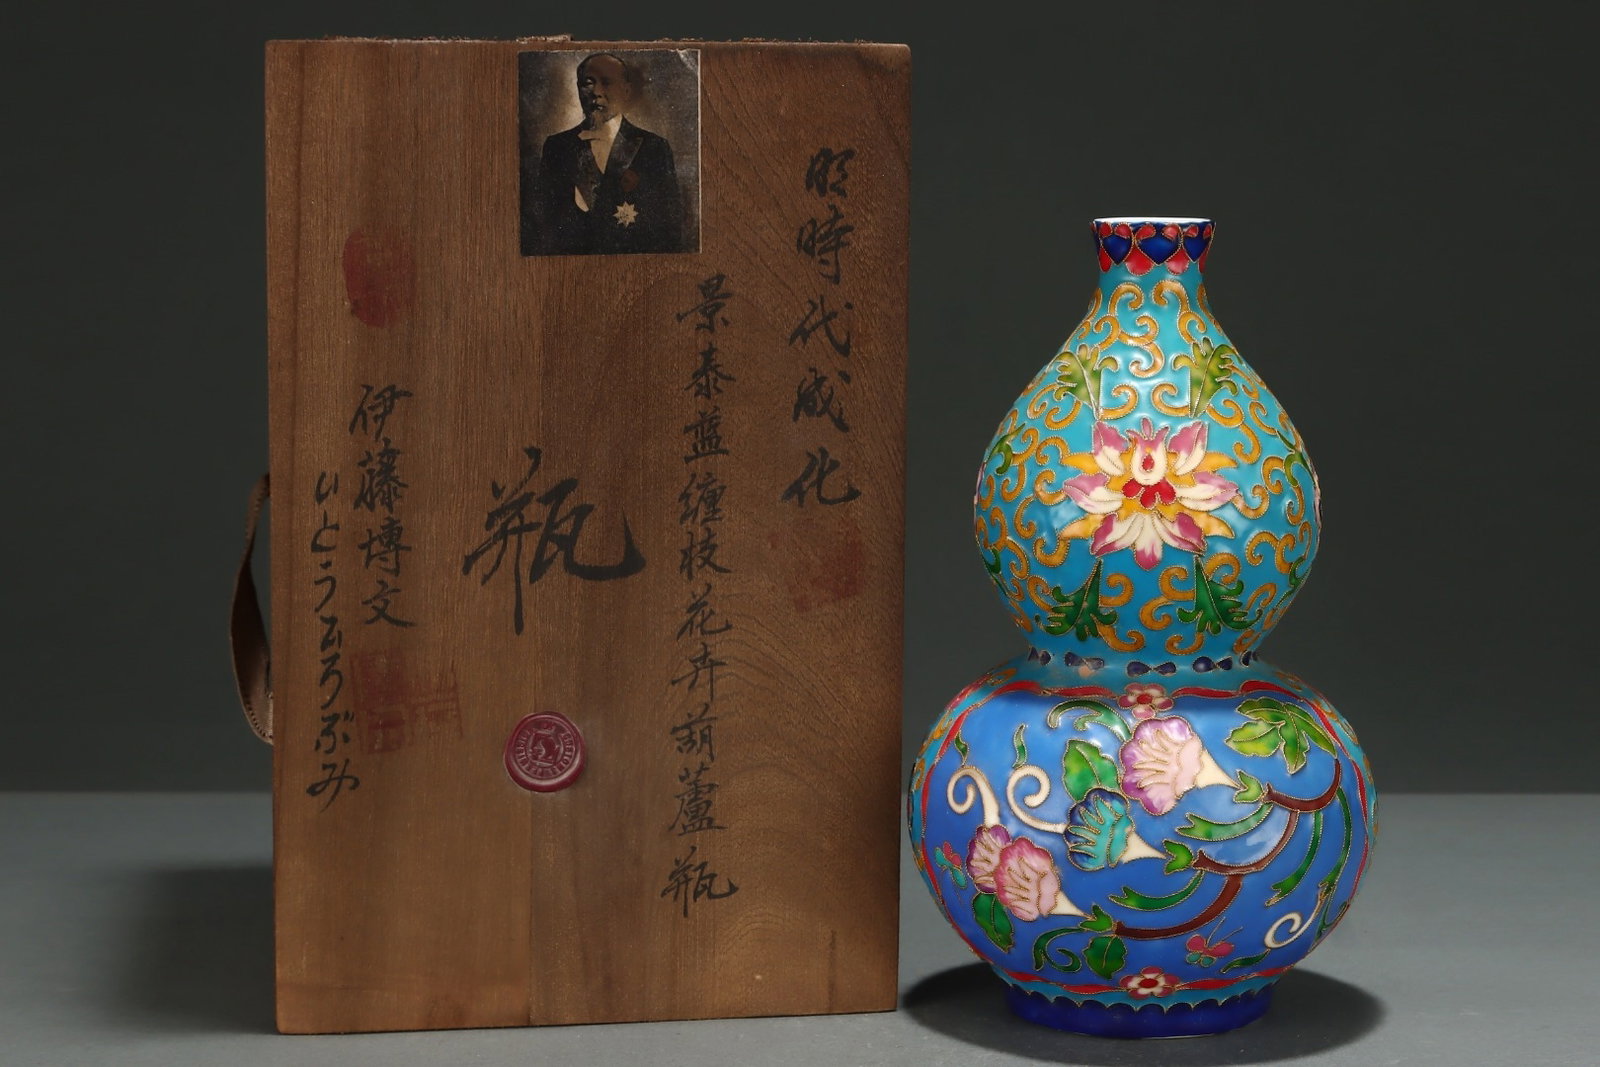 明時代成化
景泰藍纏枝花卉葫蘆瓶
瓶
伊藤博文
いとうひろぶみ